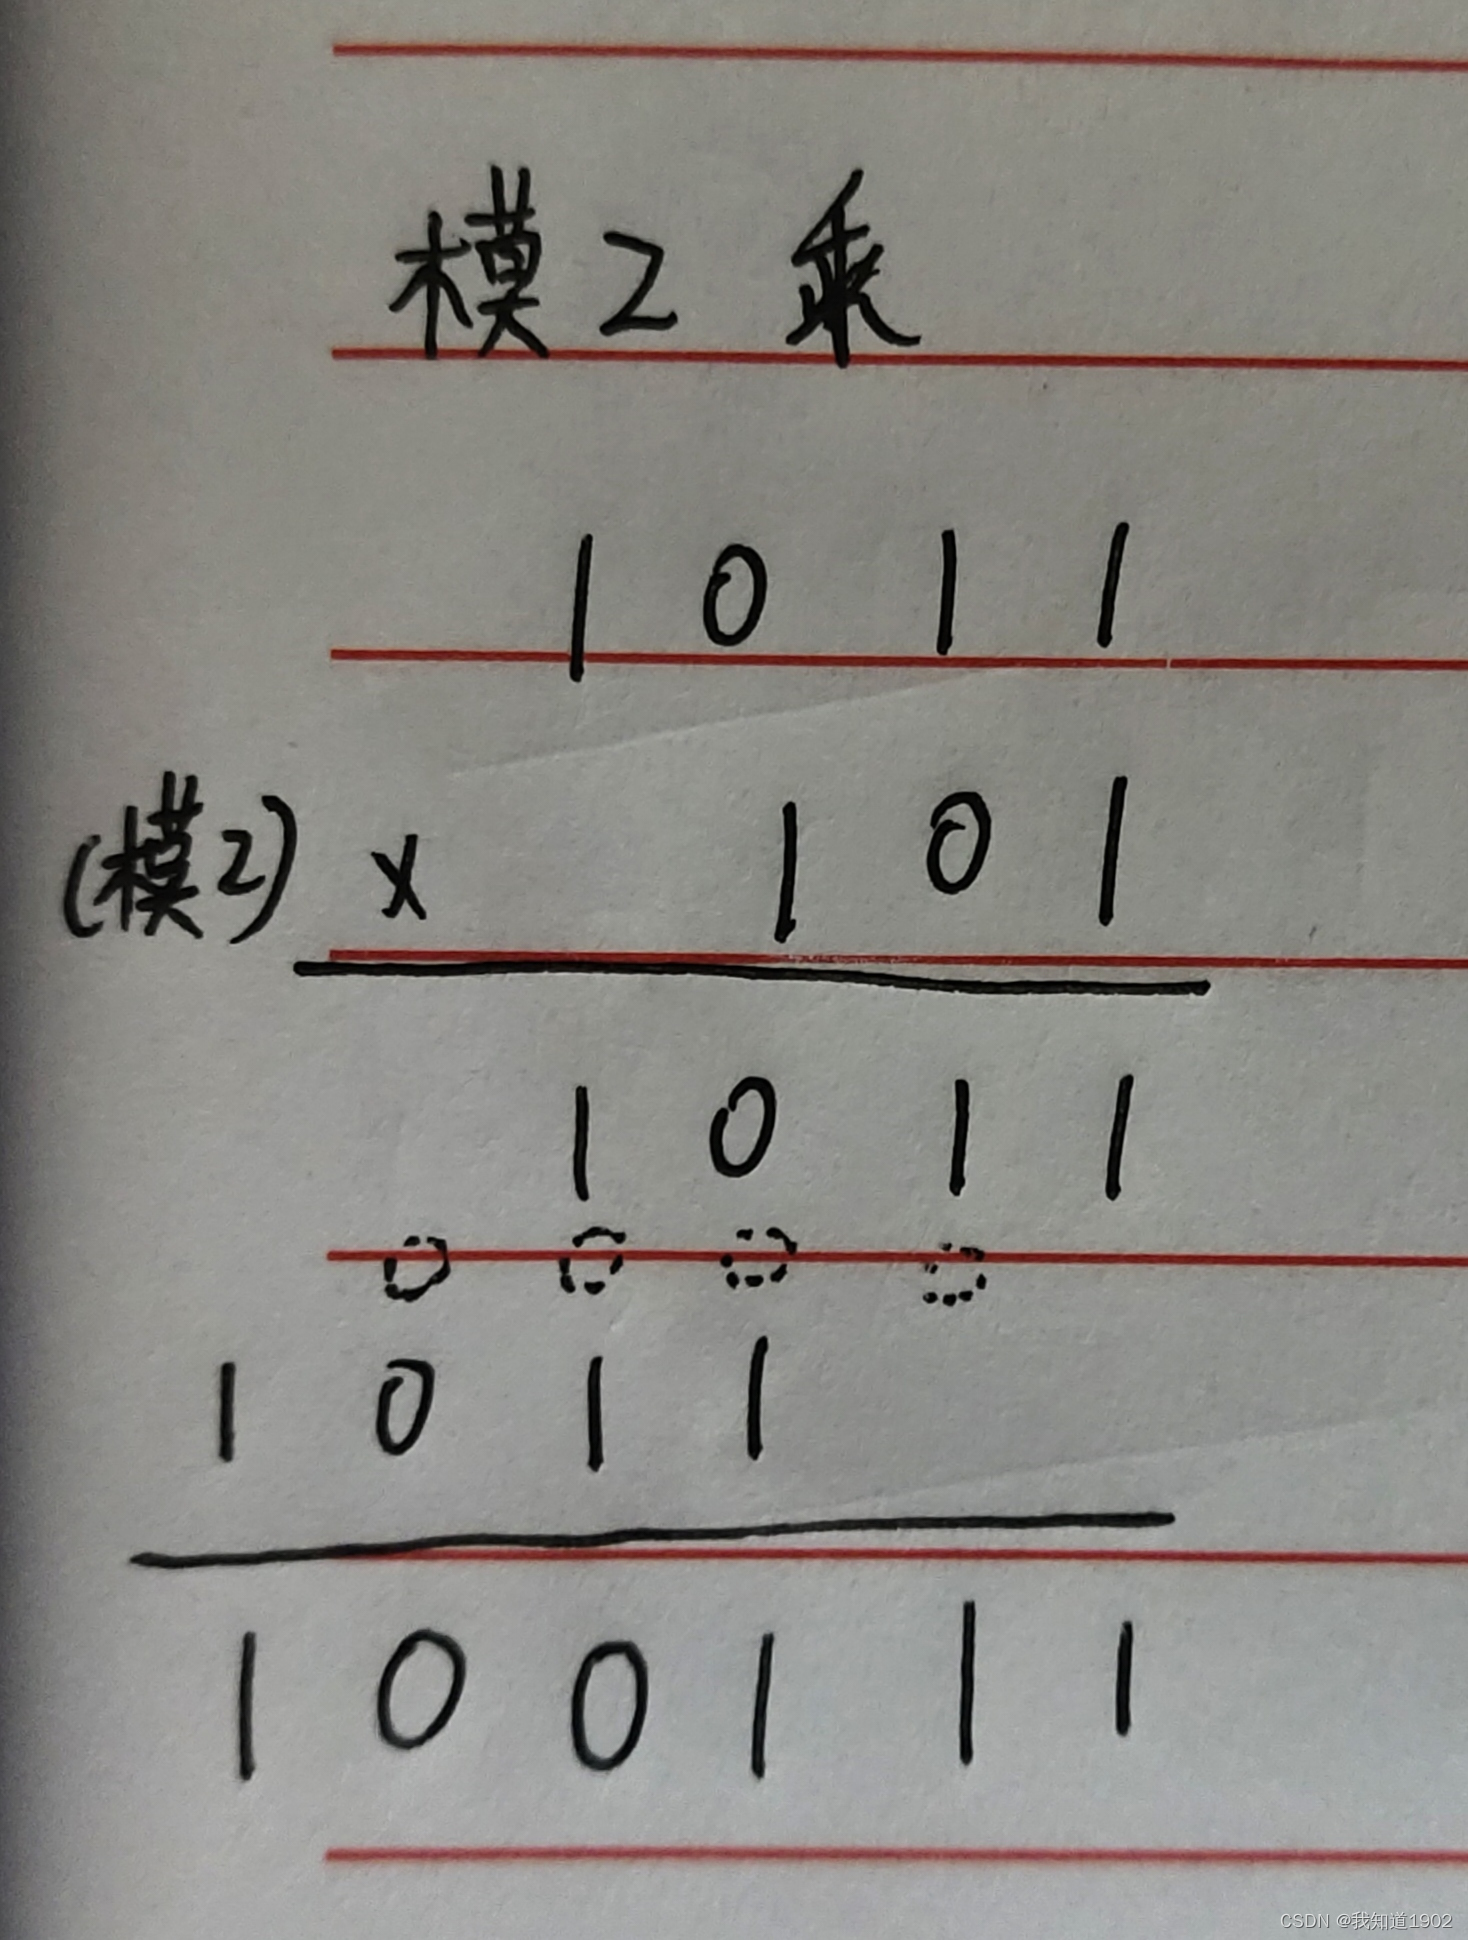 模2 乘
1 0 1 1
(模2) × 1 0 1
1 0 1 1
0 0 0 0
1 0 1 1
1 0 0 1 1 1
CSDN @我知道1902